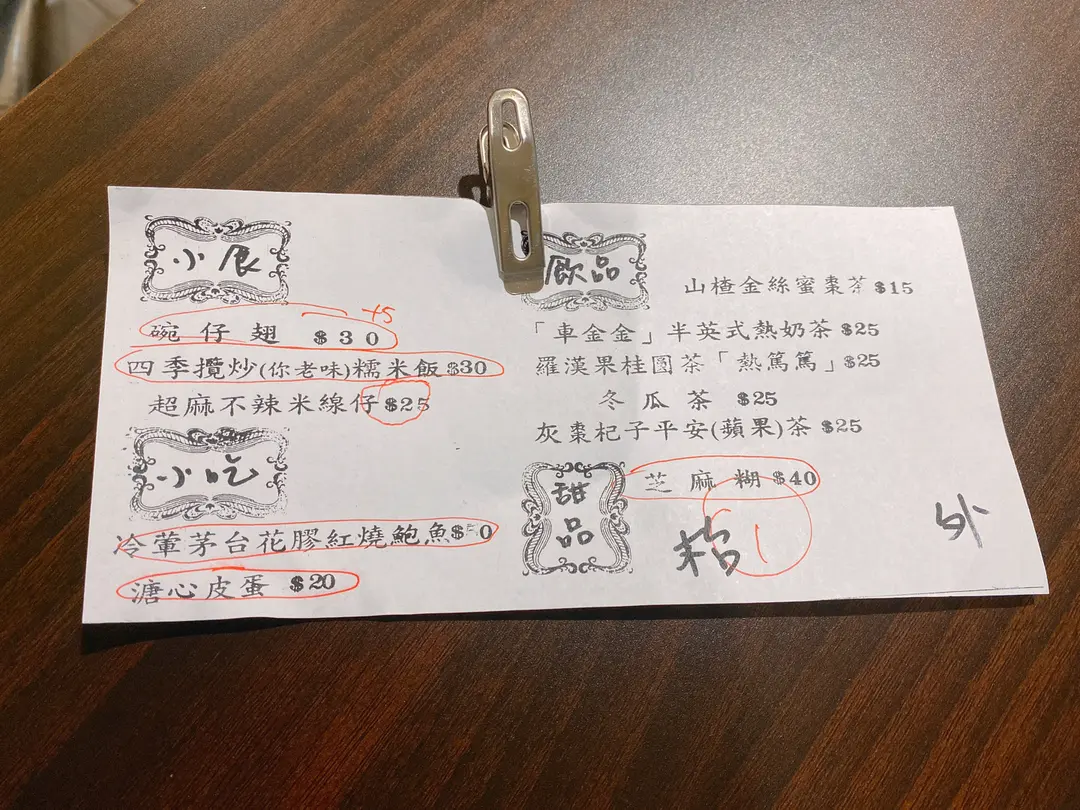 小展
+5
碗仔翅 $30
四季攬炒(你老味)糯米飯$30
超麻不辣米線仔$25
小吃
冷葷茅台花膠紅燒鮑魚$50
溏心皮蛋 $20
飲品
山楂金絲蜜棗茶$15
「車金金」半英式熱奶茶$25
羅漢果桂圓茶「熱篤篤」$25
冬瓜茶 $25
灰棗杞子平安(蘋果)茶 $25
甜品
芝麻糊 $40
1
外